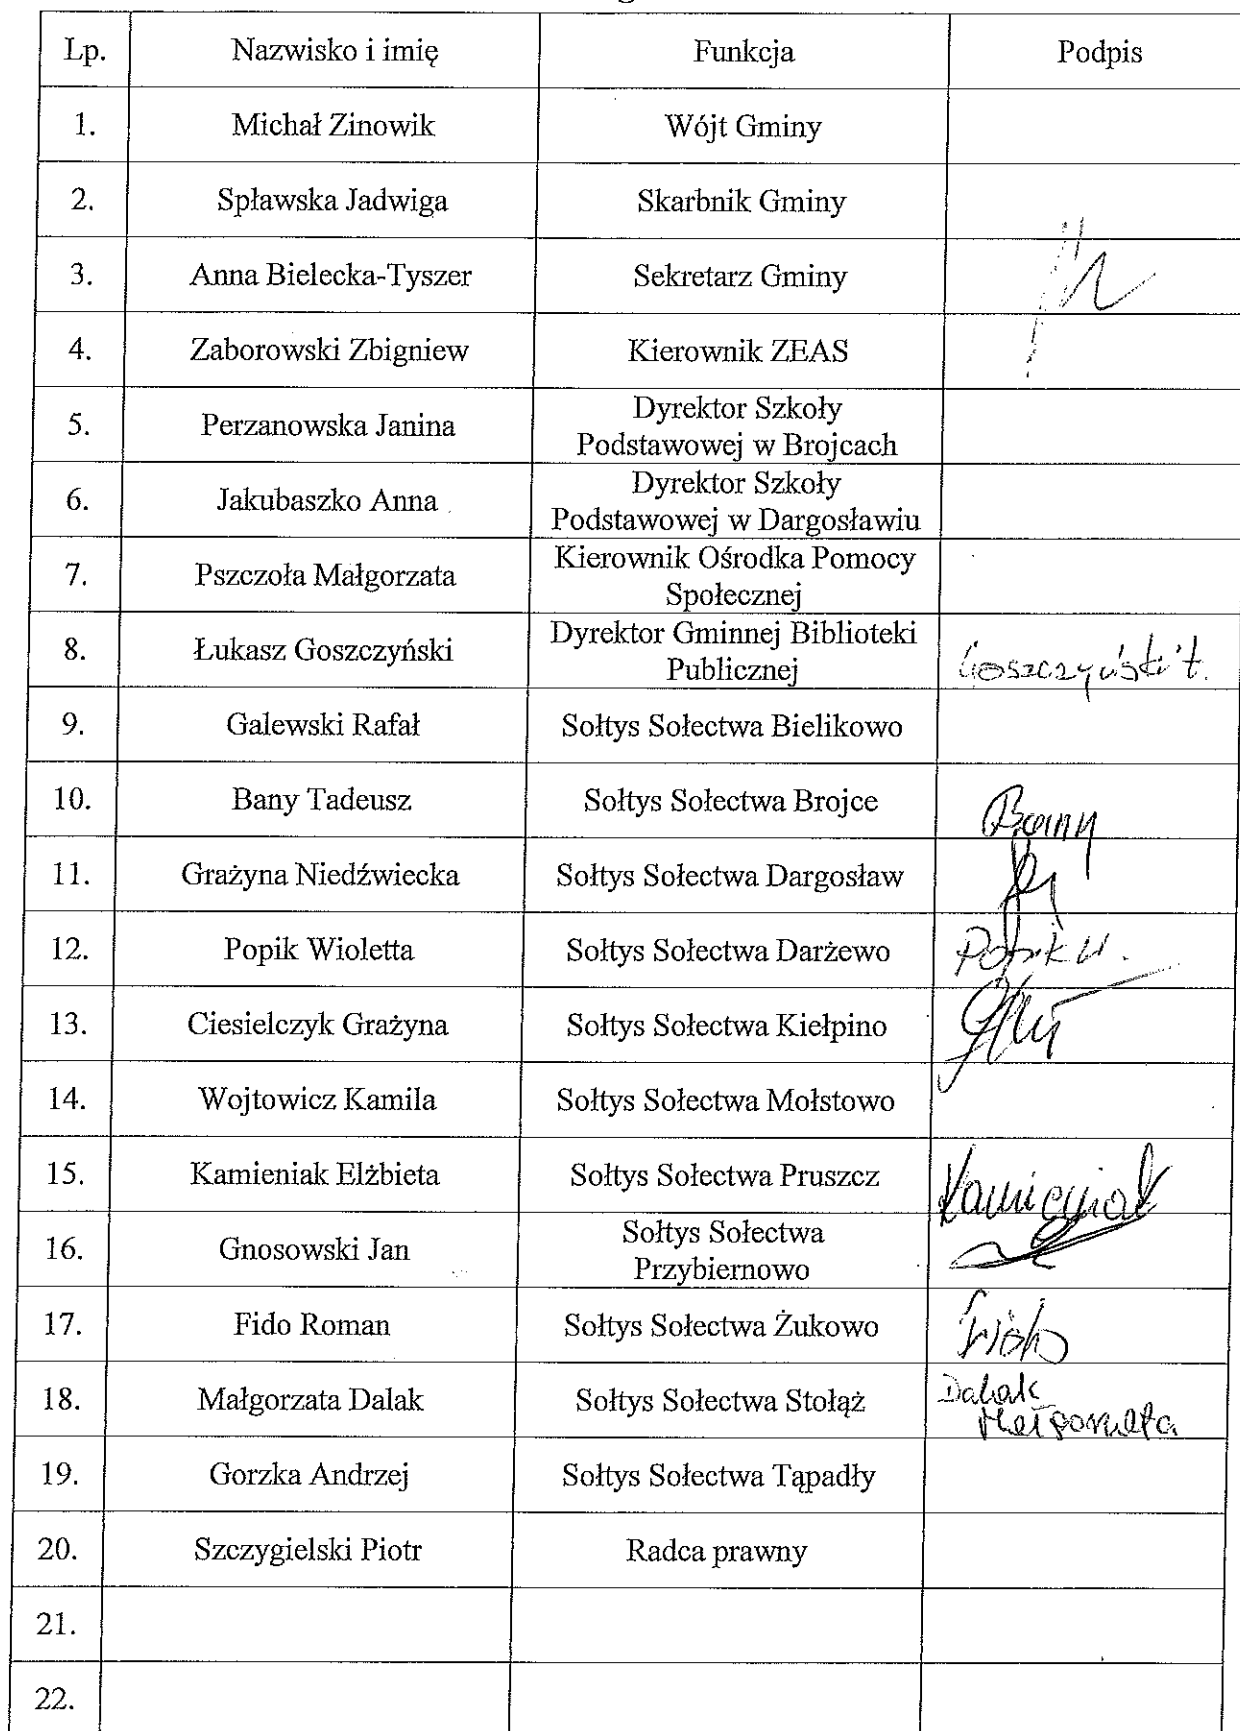 Lp. Nazwisko i imię Funkcja Podpis
1. Michał Zinowik Wójt Gminy
2. Spławska Jadwiga Skarbnik Gminy
3. Anna Bielecka-Tyszer Sekretarz Gminy
4. Zaborowski Zbigniew Kierownik ZEAS
5. Perzanowska Janina Dyrektor Szkoły
Podstawowej w Brojcach
6. Jakubaszko Anna Dyrektor Szkoły
Podstawowej w Dargosławiu
7. Pszczoła Małgorzata Kierownik Ośrodka Pomocy
Społecznej
8. Łukasz Goszczyński Dyrektor Gminnej Biblioteki
Publicznej Goszczyński Ł.
9. Galewski Rafał Sołtys Sołectwa Bielikowo
10. Bany Tadeusz Sołtys Sołectwa Brojce Bany
11. Grażyna Niedźwiecka Sołtys Sołectwa Dargosław
12. Popik Wioletta Sołtys Sołectwa Darżewo Popik W.
13. Ciesielczyk Grażyna Sołtys Sołectwa Kiełpino
14. Wojtowicz Kamila Sołtys Sołectwa Mołstowo
15. Kamieniak Elżbieta Sołtys Sołectwa Pruszcz Kamieniak
16. Gnosowski Jan Sołtys Sołectwa
Przybiernowo
17. Fido Roman Sołtys Sołectwa Żukowo Fido
18. Małgorzata Dalak Sołtys Sołectwa Stołąż Dalak
Małgorzata
19. Gorzka Andrzej Sołtys Sołectwa Tąpadły
20. Szczygielski Piotr Radca prawny
21.
22.